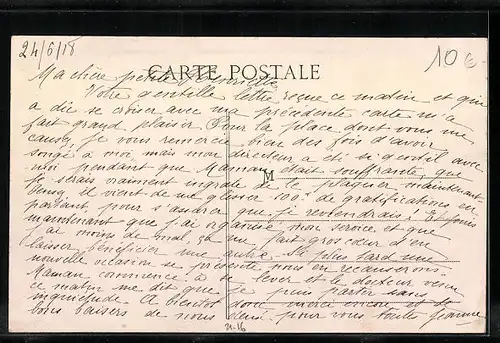 24/6/18
10€
CARTE POSTALE
Ma chère petite Henriette
Votre gentille lettre reçue ce matin et qui
a dû se croiser avec ma précédente carte m'a
fait grand plaisir. Pour la place dont vous me
causez, je vous remercie bien des fois d'avoir
songé à moi mais mon directeur a été si gentil avec
moi pendant que Maman était souffrante, que
je serais vraiment ingrate de le plaquer maintenant
il vient de me glisser 100f de gratifications en
partant pour s'assurer que je reviendrais! Et puis
maintenant que j'ai organisé mon service et que
j'ai moins de mal, ça me fait gros cœur d'en
laisser bénéficier une autre. Si plus tard une
nouvelle occasion se présente nous en recauserons.
Maman commence à se lever et le docteur venu
ce matin me dit que je puis partir sans
inquiétude. A bientôt donc merci encore et de
bons baisers de nous deux pour vous toute
M
21-16